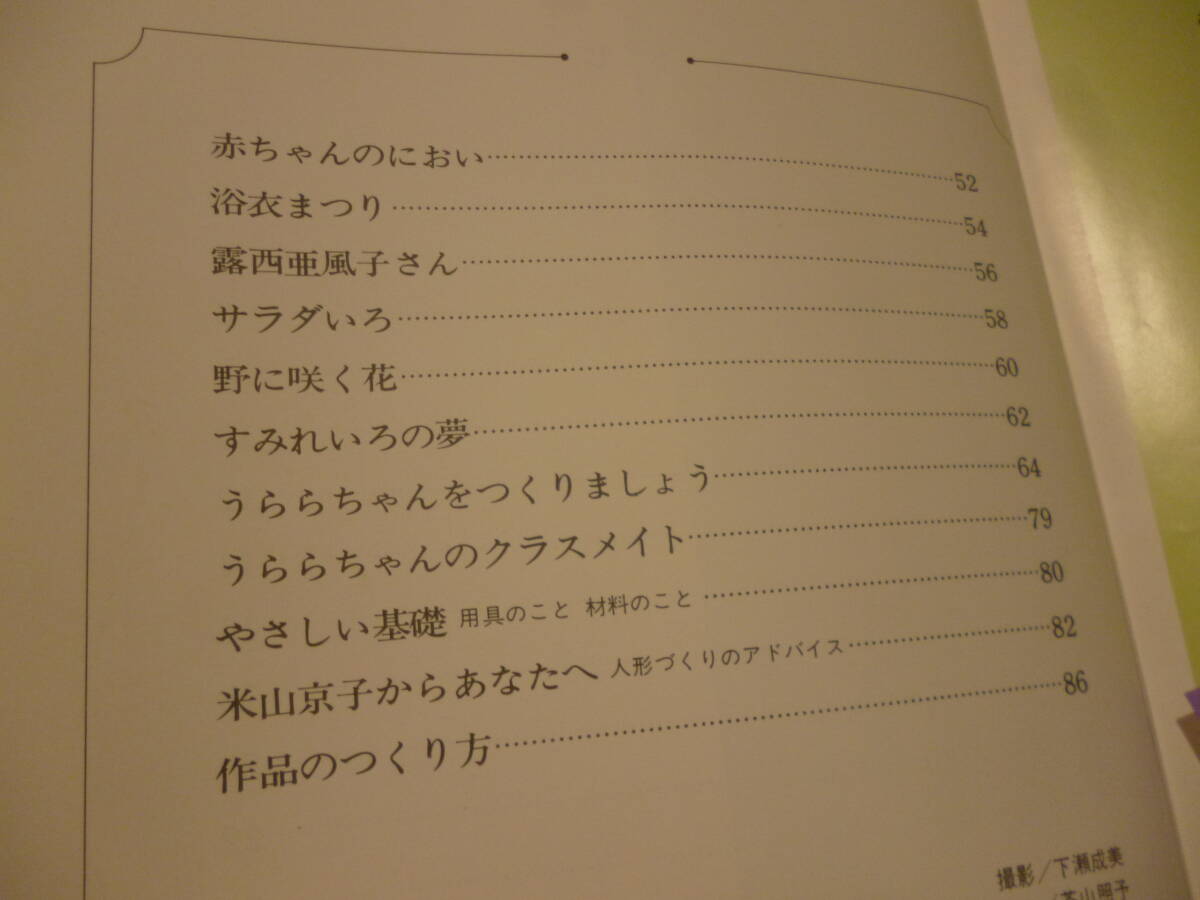 赤ちゃんのにおい……52
浴衣まつり……54
露西亜風子さん……56
サラダいろ……58
野に咲く花……60
すみれいろの夢……62
うららちゃんをつくりましょう……64
うららちゃんのクラスメイト……79
やさしい基礎 用具のこと 材料のこと……80
米山京子からあなたへ 人形づくりのアドバイス……82
作品のつくり方……86
撮影/下瀬成美